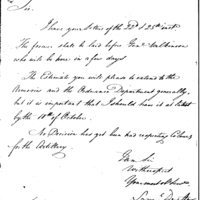 Sir.
I have your letters of the 22d & 25th inst.
The former shall be laid before Genl Wilkinson
who will be here in a few days
The Estimate you will please to extend to the
Armories and the Ordnance Department generally,
but it is important that I should have it as
by the 10th of October.
No Decision has yet been had respecting
for the Artillery
I am Sir
with respect
Your most